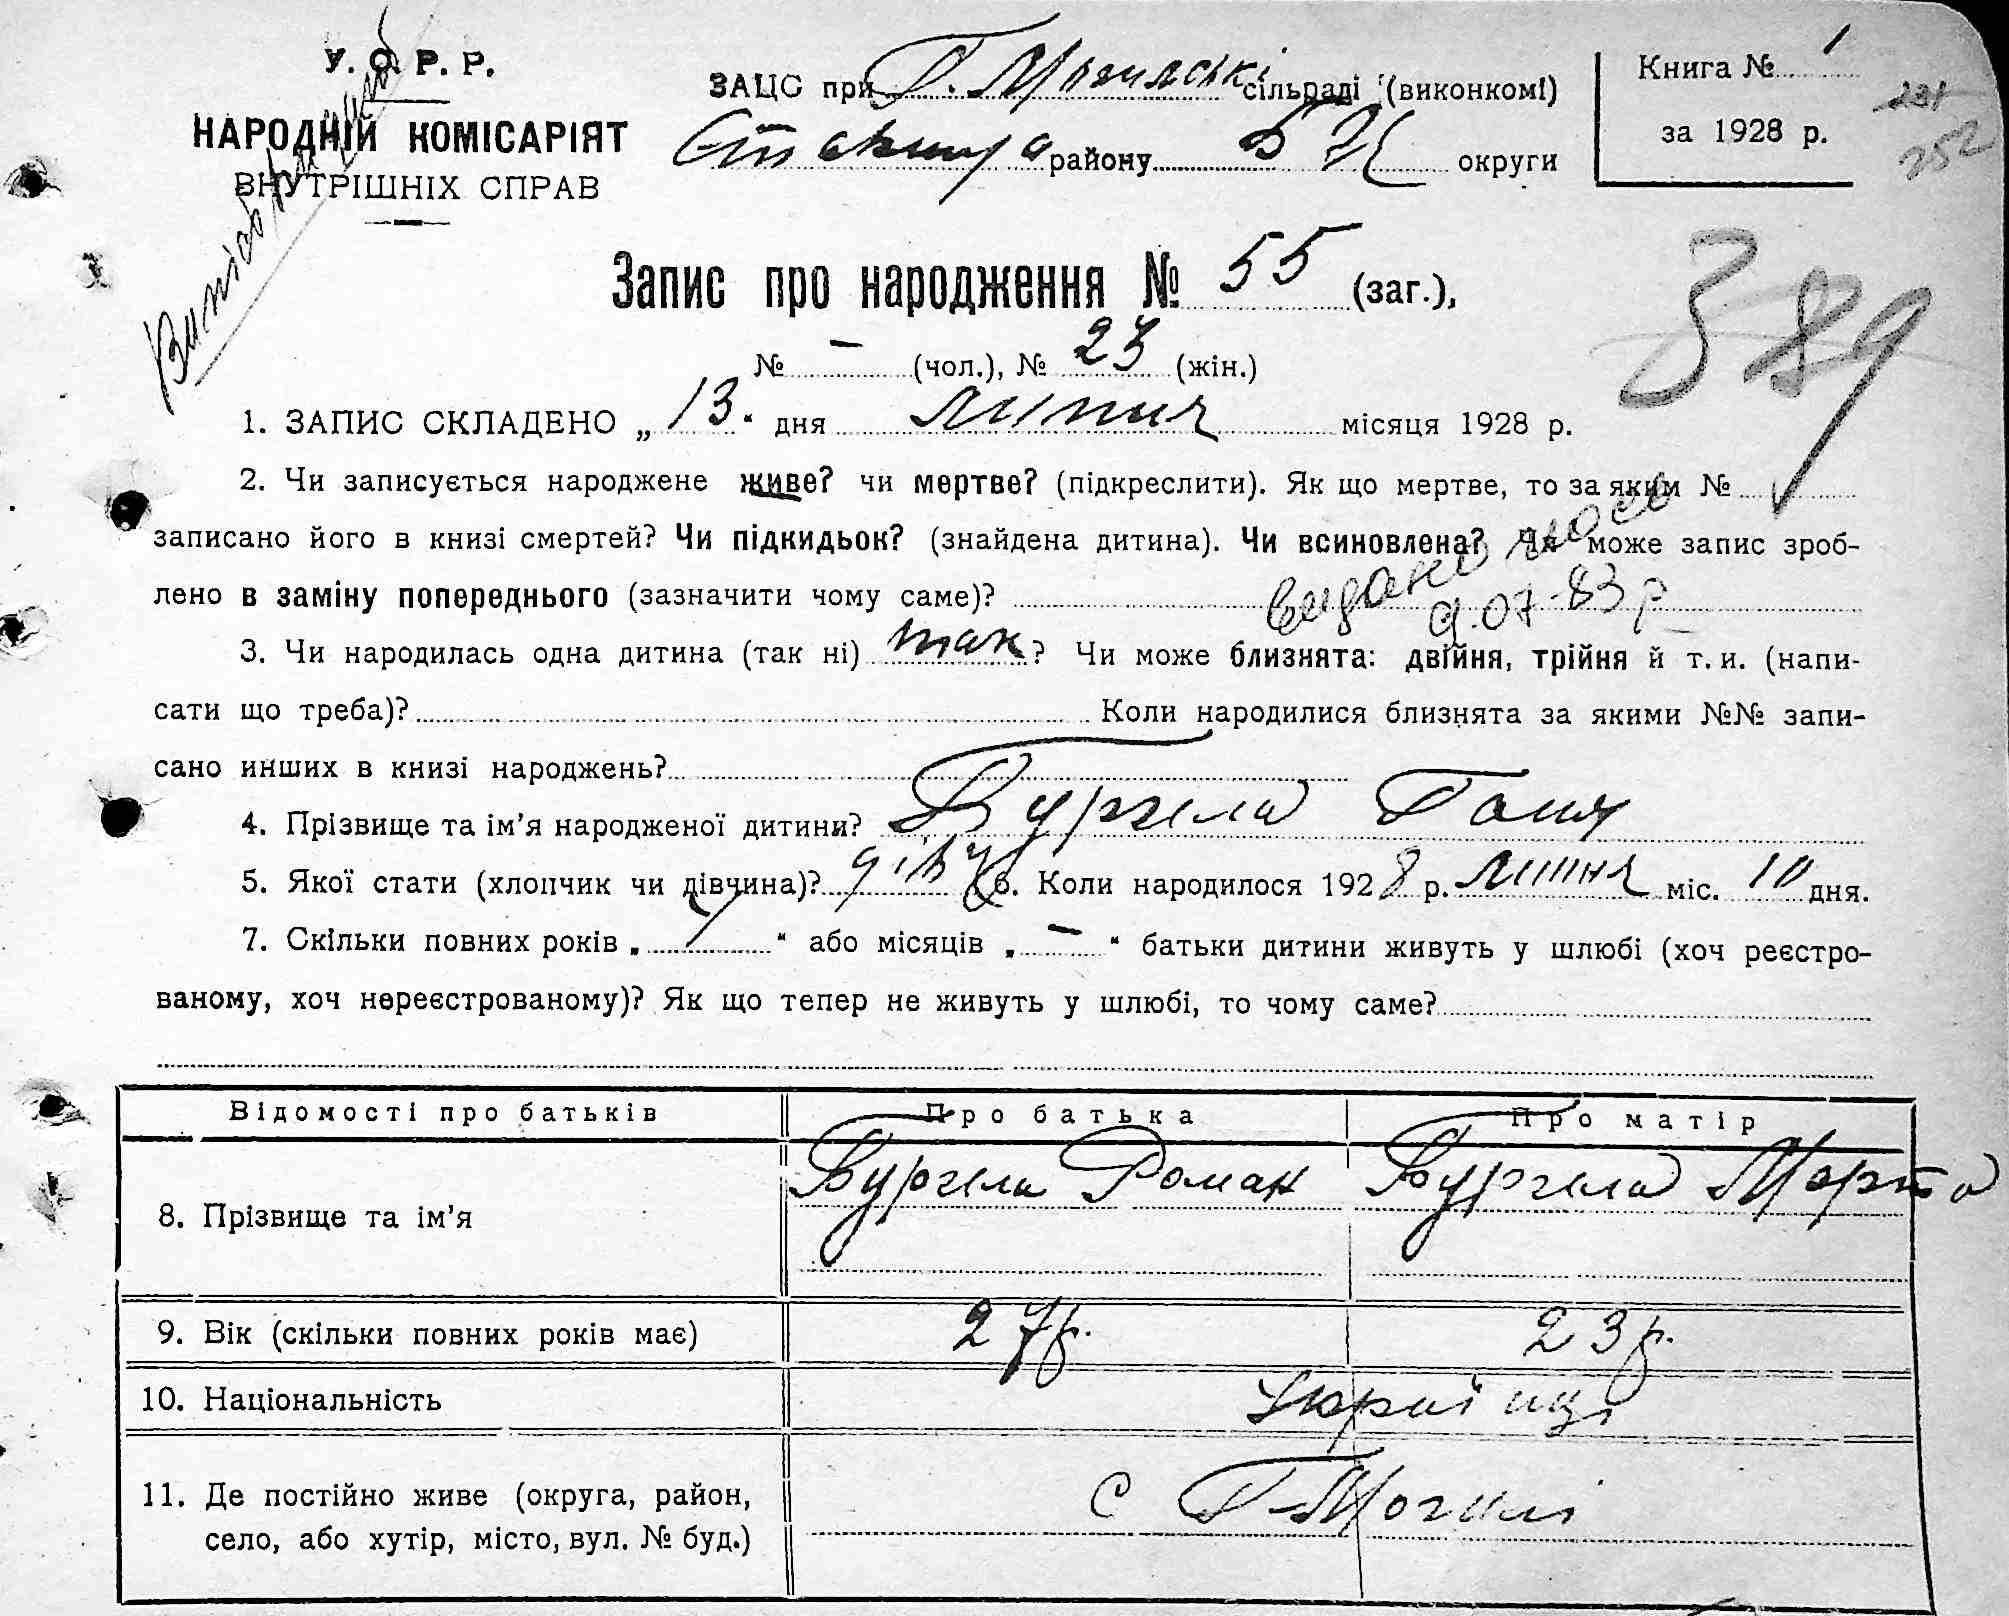 У. С. Р. Р.
НАРОДНІЙ КОМІСАРІЯТ
ВНУТРІШНІХ СПРАВ
ЗАЦС при Г. Могильські сільраді (виконкомі)
району БЦ округи
Книга № 1
за 1928 р.
252
Запис про народження № 55 (заг.),
№ — (чол.), № 23 (жін.)
389
1. ЗАПИС СКЛАДЕНО „13“ дня липня місяця 1928 р.
2. Чи записується народжене живе? чи мертве? (підкреслити). Як що мертве, то за яким №
записано його в книзі смертей? Чи підкидьок? (знайдена дитина). Чи всиновлена? Чи може запис зроб-
лено в заміну попереднього (зазначити чому саме)?
видано
9.07-83 р
3. Чи народилась одна дитина (так ні) так? Чи може близнята: двійня, трійня й т. и. (напи-
сати що треба)? Коли народилися близнята за якими №№ запи-
сано инших в книзі народжень?
4. Прізвище та ім’я народженої дитини? Бургела Ганя
5. Якої стати (хлопчик чи дівчина)? дівч 6. Коли народилося 1928 р. липня міс. 10 дня.
7. Скільки повних років „ “ або місяців „—“ батьки дитини живуть у шлюбі (хоч реєстро-
ваному, хоч нереєстрованому)? Як що тепер не живуть у шлюбі, то чому саме?
Відомості про батьків Про батька Про матір
8. Прізвище та ім’я Бургела Роман Бургела Марта
9. Вік (скільки повних років має) 27р. 23р.
10. Національність Українці
11. Де постійно живе (округа, район, с Г-Могилі
село, або хутір, місто, вул. № буд.)